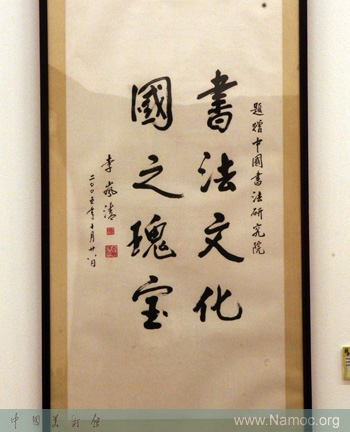 題贈中國書法研究院
書法文化
國之瑰宝
李嵐清
二〇〇五年十月廿八日
中国美术馆
www.Namoc.org